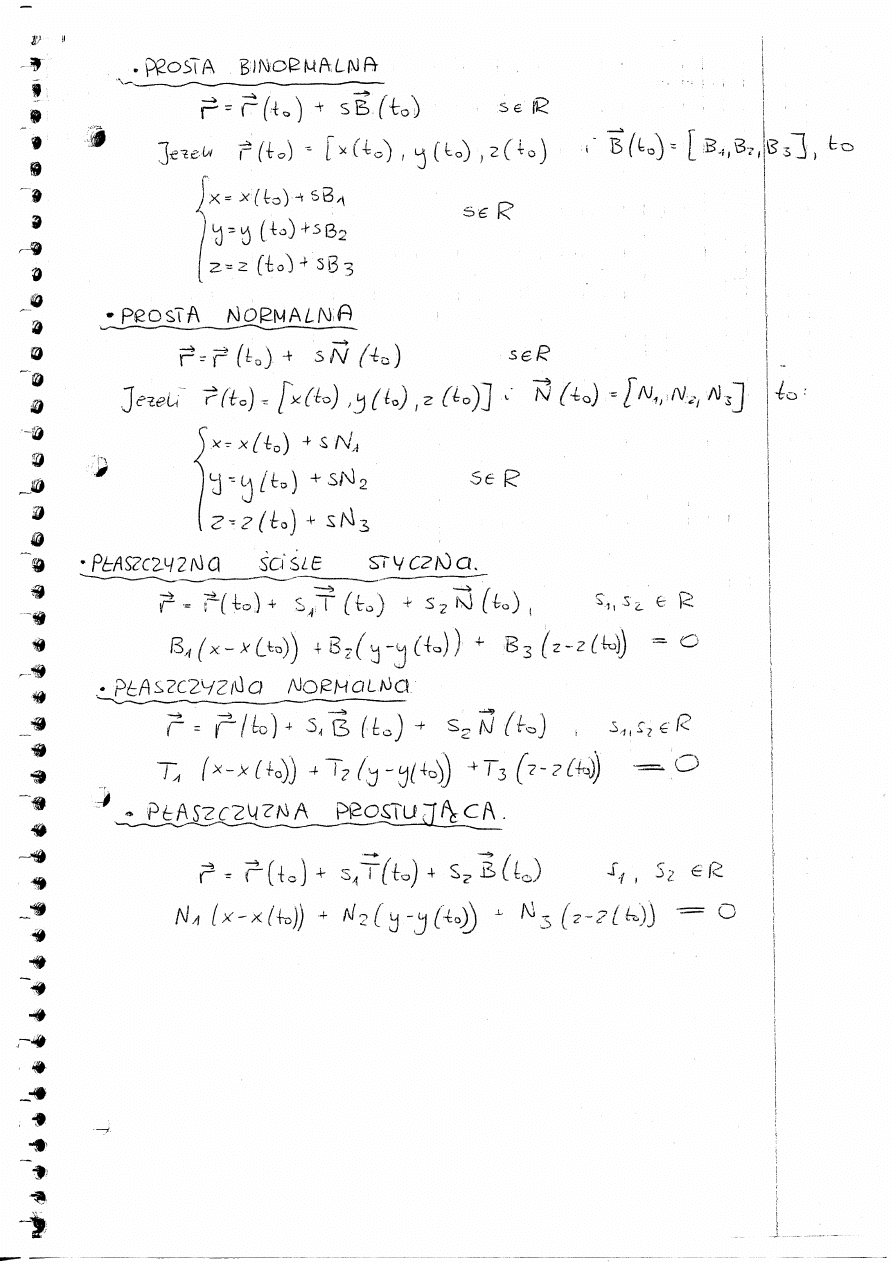 • PROSTA BINORMALNA
r⃗ = r⃗(t₀) + sB⃗(t₀) s∈R
Jeżeli r⃗(t₀) = [x(t₀), y(t₀), z(t₀) i B⃗(t₀) = [B₁, B₂, B₃], to
x = x(t₀) + sB₁
y = y(t₀) + sB₂ s∈R
z = z(t₀) + sB₃
• PROSTA NORMALNA
r⃗ = r⃗(t₀) + sN⃗(t₀) s∈R
Jeżeli r⃗(t₀) = [x(t₀), y(t₀), z(t₀)] i N⃗(t₀) = [N₁, N₂, N₃] to:
x = x(t₀) + sN₁
y = y(t₀) + sN₂ s∈R
z = z(t₀) + sN₃
• PŁASZCZYZNA ŚCIŚLE STYCZNA.
r⃗ = r⃗(t₀) + s₁T⃗(t₀) + s₂N⃗(t₀), s₁, s₂ ∈ R
B₁(x-x(t₀)) + B₂(y-y(t₀)) + B₃(z-z(t₀)) = 0
• PŁASZCZYZNA NORMALNA
r⃗ = r⃗(t₀) + s₁B⃗(t₀) + s₂N⃗(t₀), s₁, s₂ ∈ R
T₁(x-x(t₀)) + T₂(y-y(t₀)) + T₃(z-z(t₀)) = 0
• PŁASZCZYZNA PROSTUJĄCA.
r⃗ = r⃗(t₀) + s₁T⃗(t₀) + s₂B⃗(t₀) s₁, s₂ ∈ R
N₁(x-x(t₀)) + N₂(y-y(t₀)) + N₃(z-z(t₀)) = 0